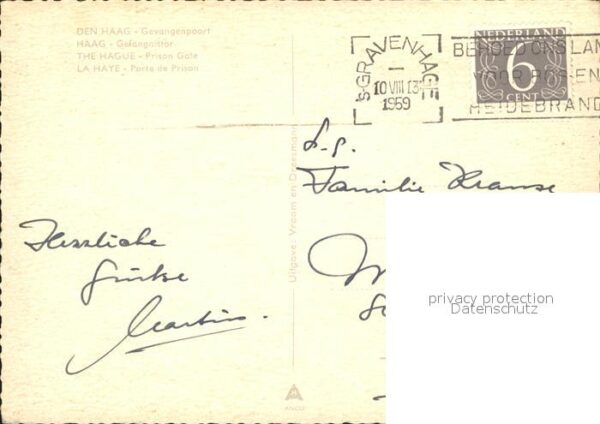 DEN HAAG - Gevangenpoort
HAAG - Gefangnistor
THE HAGUE - Prison Gate
LA HAYE - Porte de Prison
's-GRAVENHAGE
10 VIII 13
1959
BEHOED ONS LAN
VOOR BOS EN
HEIDEBRAND
NEDERLAND
6
CENT
Uitgave: Vroom en Dreesmann
Familie Krause
Herzliche
Grüße
Martin.
privacy protection
Datenschutz
ANCO